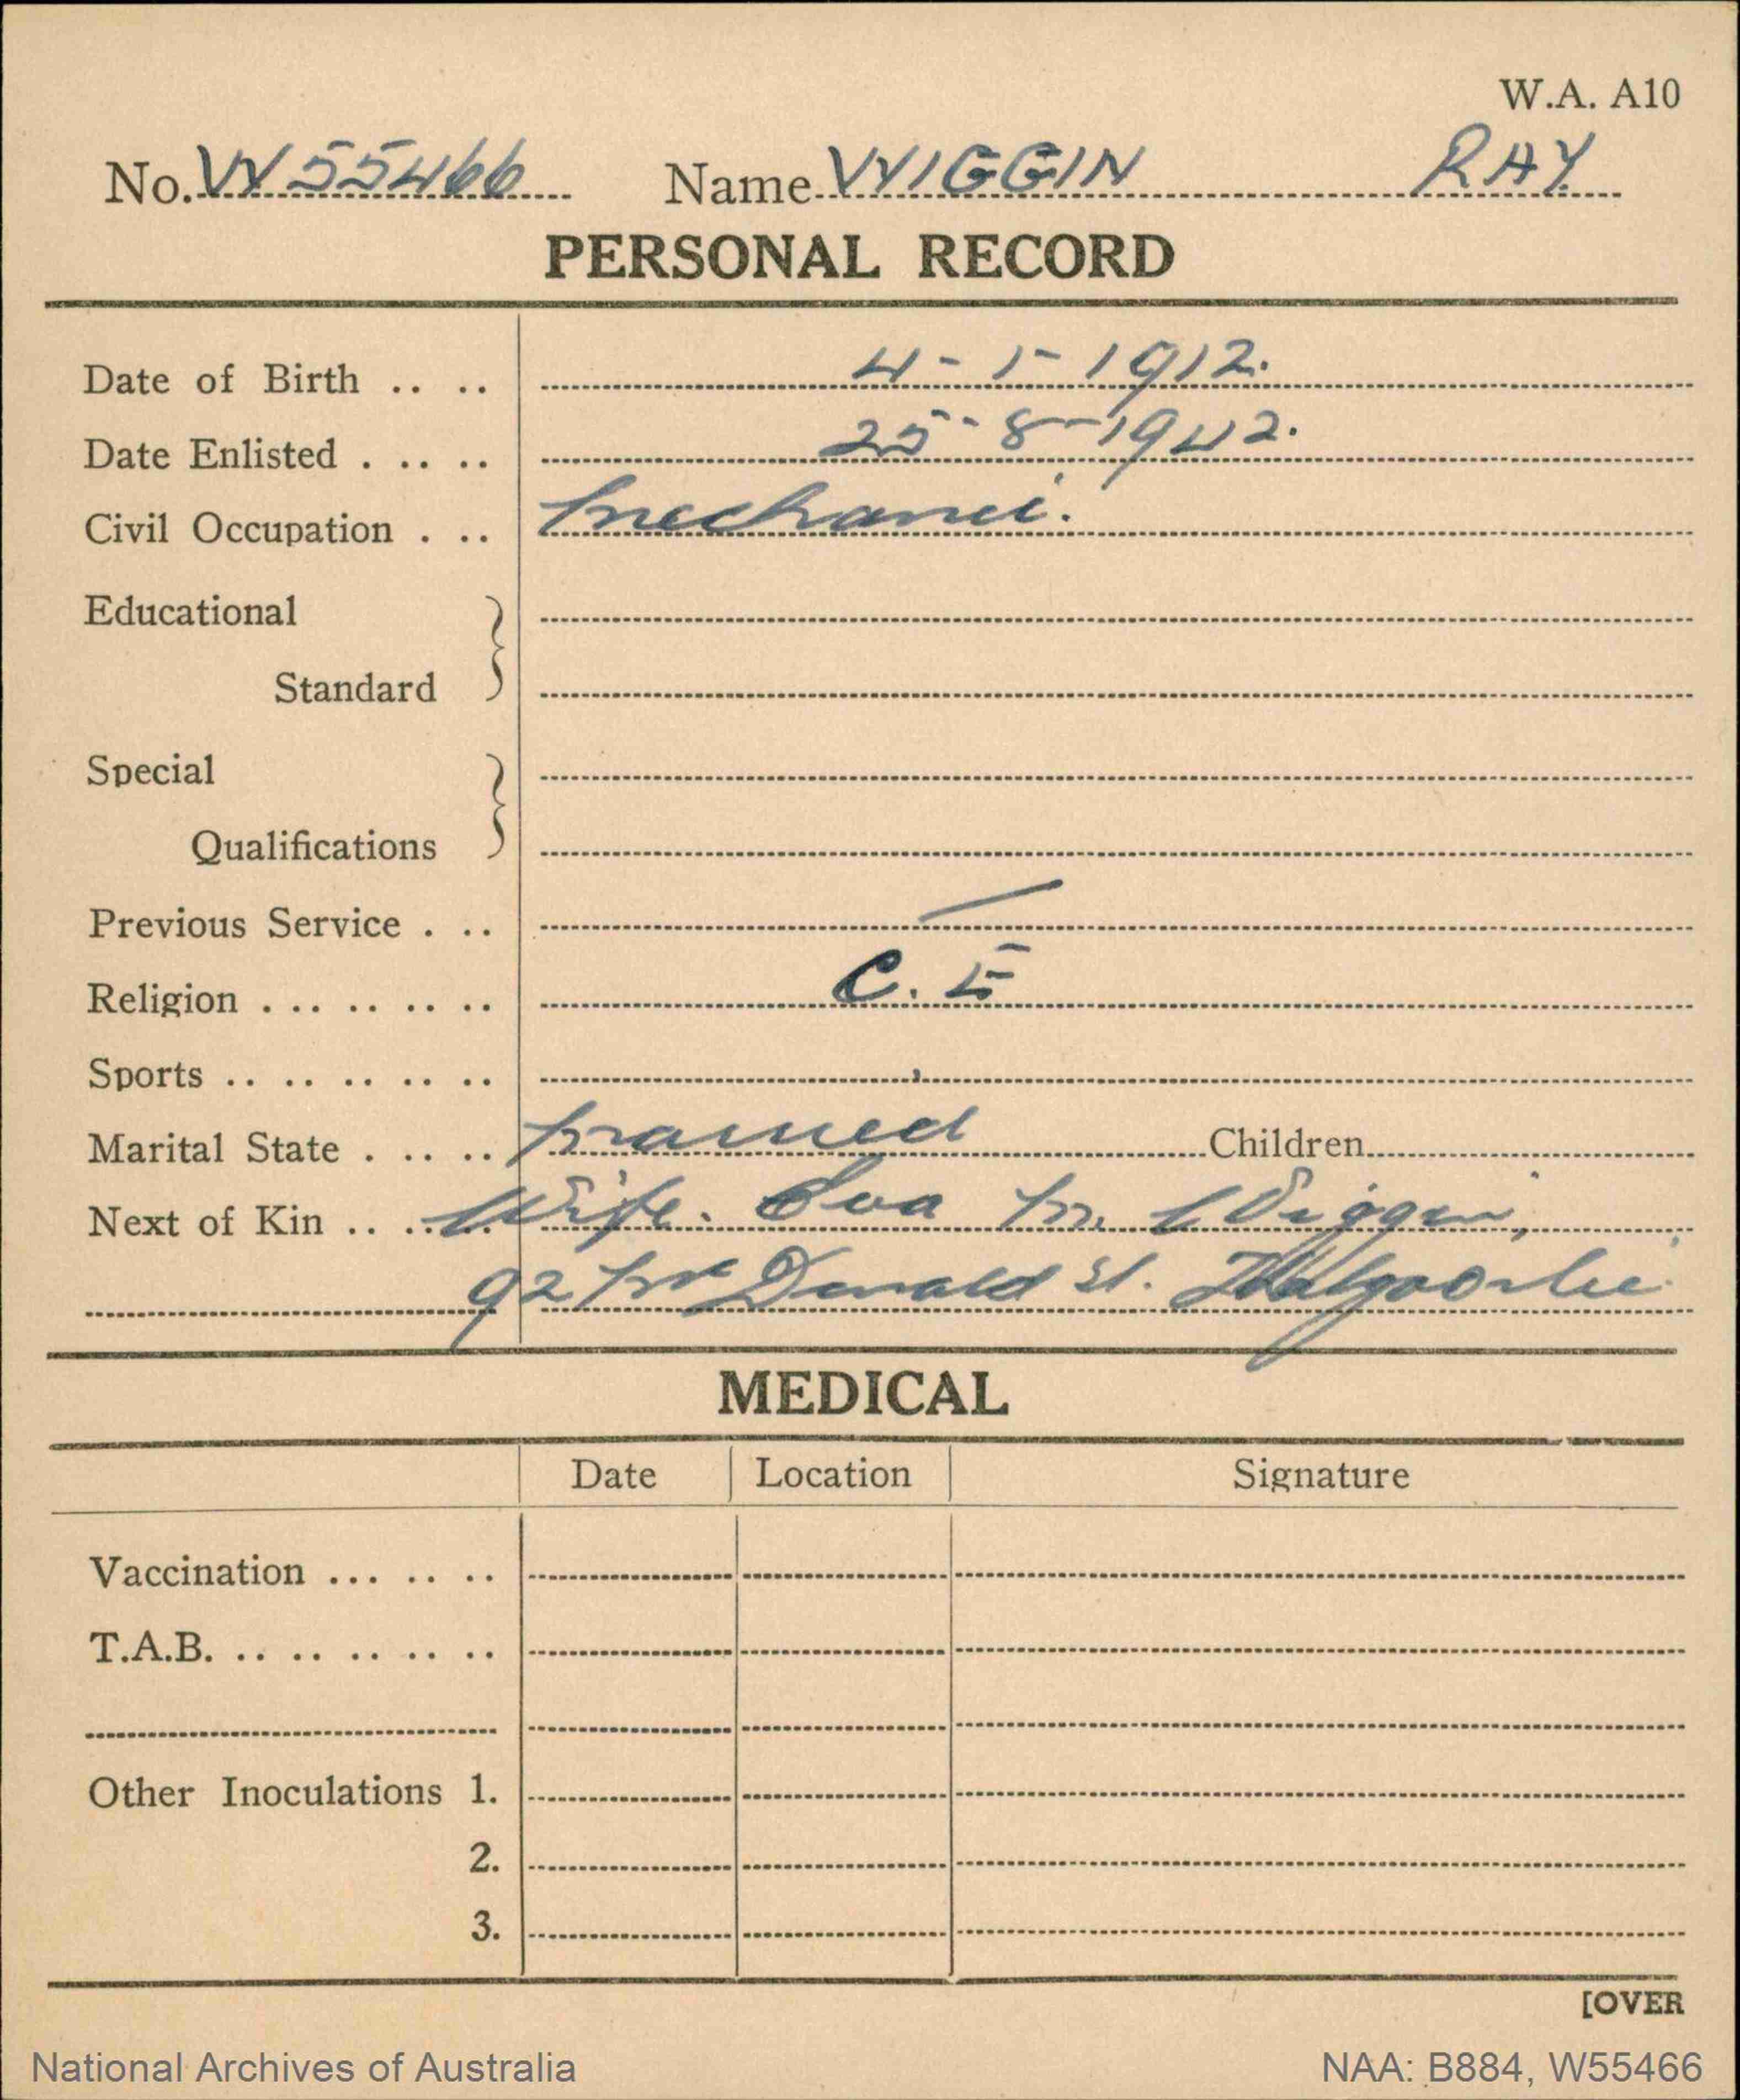 W.A. A10
No. W55466 Name WIGGIN RAY
PERSONAL RECORD
Date of Birth .. .. 4-1-1912.
Date Enlisted . .. .. 25-8-1942.
Civil Occupation . .. Mechanic.
Educational
Standard
Special
Qualifications
Previous Service . .. /
Religion . .. .. .. .. C. E
Sports .. .. .. .. ..
Marital State . .. .. Married Children
Next of Kin .. .. Wife. Eva M. Wiggin,
92 Mc Donald St. Kalgoorlie
MEDICAL
Date Location Signature
Vaccination ... .. ..
T.A.B. .. .. .. .. ..
Other Inoculations 1.
2.
3.
[OVER
National Archives of Australia NAA: B884, W55466